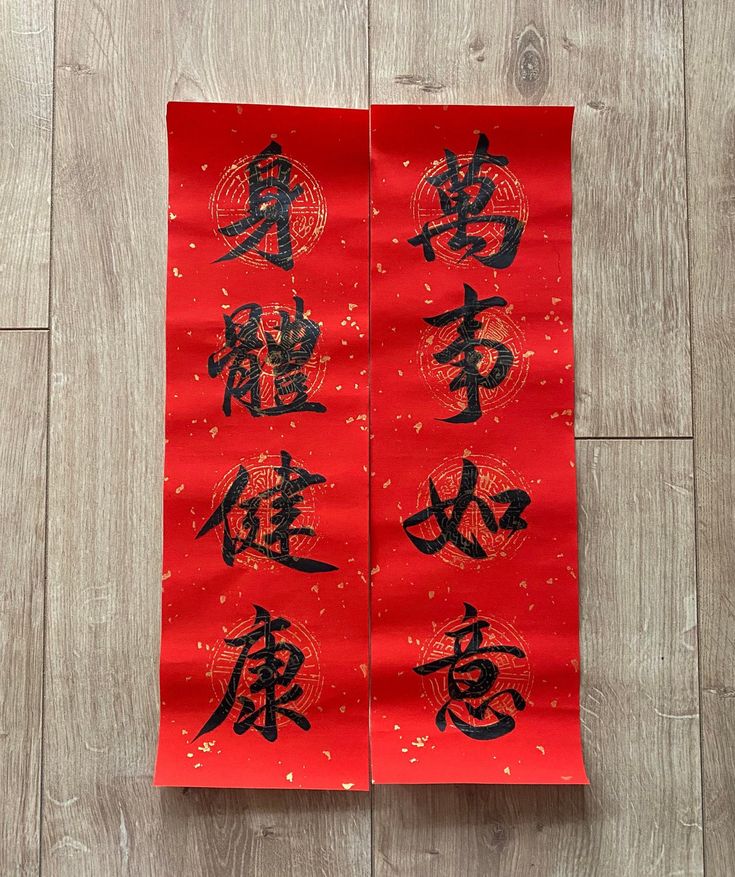 萬事如意
身體健康